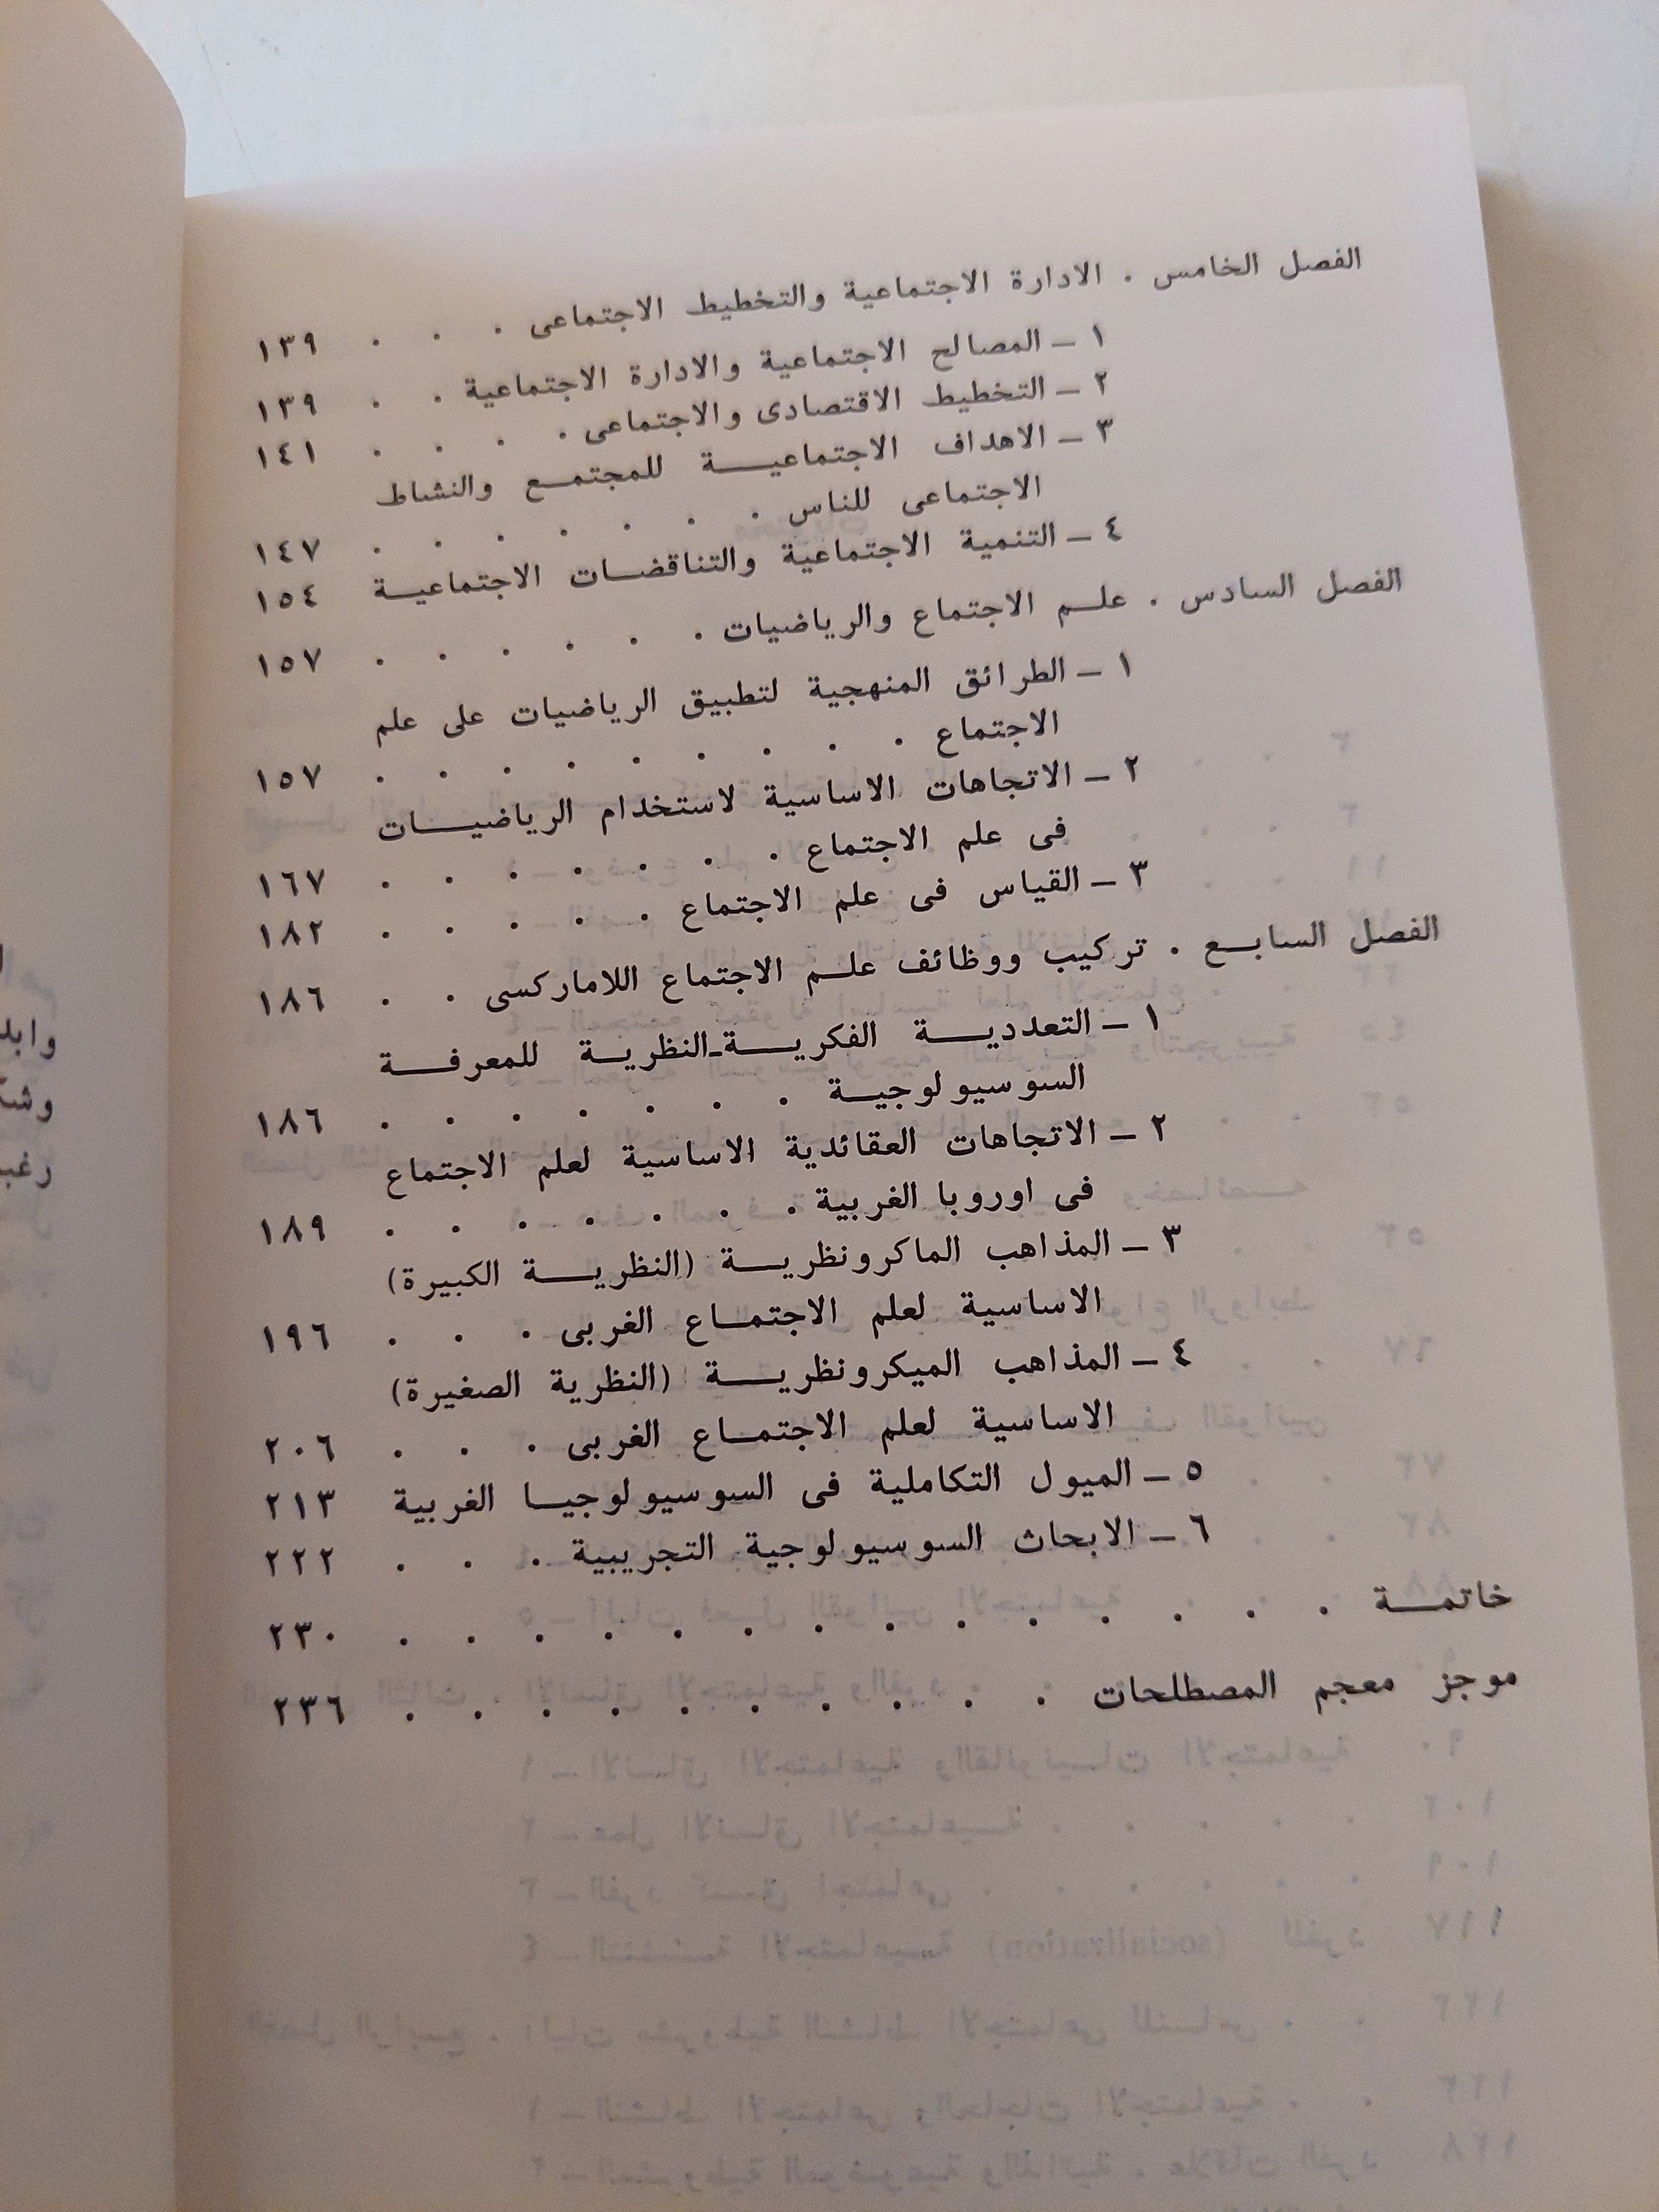 الفصل الخامس . الادارة الاجتماعية والتخطيط الاجتماعى . . . ١٣٩
١ – المصالح الاجتماعية والادارة الاجتماعية . . ١٣٩
٢ – التخطيط الاقتصادى والاجتماعى . . . . ١٤١
٣ – الاهداف الاجتماعيــة للمجتمـع والنشاط
الاجتماعى للناس . . . . . . . ١٤٧
٤ – التنمية الاجتماعية والتناقضـات الاجتماعيـة ١٥٤
الفصل السادس . علـم الاجتماع والرياضيات . . . . . . ١٥٧
١ – الطرائق المنهجية لتطبيق الرياضيات على علم
الاجتماع . . . . . . . . . ١٥٧
٢ – الاتجاهات الاساسية لاستخدام الرياضيــات
فى علم الاجتماع . . . . . . . ١٦٧
٣ – القياس فى علم الاجتماع . . . . . ١٨٢
الفصل السابـع . تركيب ووظائف علـم الاجتماع اللاماركسى . . ١٨٦
١ – التعدديــة الفكريــة-النظريـة للمعرفـة
السوسيولوجيـة . . . . . . . ١٨٦
٢ – الاتجاهات العقائدية الاساسية لعلم الاجتماع
فى اوروبا الغربية . . . . . . . ١٨٩
٣ – المذاهب الماكرونظريــة (النظريــة الكبيرة)
الاساسية لعلم الاجتمـاع الغربى . . . ١٩٦
٤ – المذاهب الميكرونظريــة (النظرية الصغيرة)
الاساسية لعلم الاجتمـاع الغربى . . . ٢٠٦
٥ – الميول التكاملية فى السوسيولوجيـا الغربية ٢١٣
٦ – الابحاث السوسيولوجية التجريبية . . . ٢٢٢
خاتمــة . . . . . . . . . . . . . . ٢٣٠
موجز معجم المصطلحات . . . . . . . . . . ٢٣٦